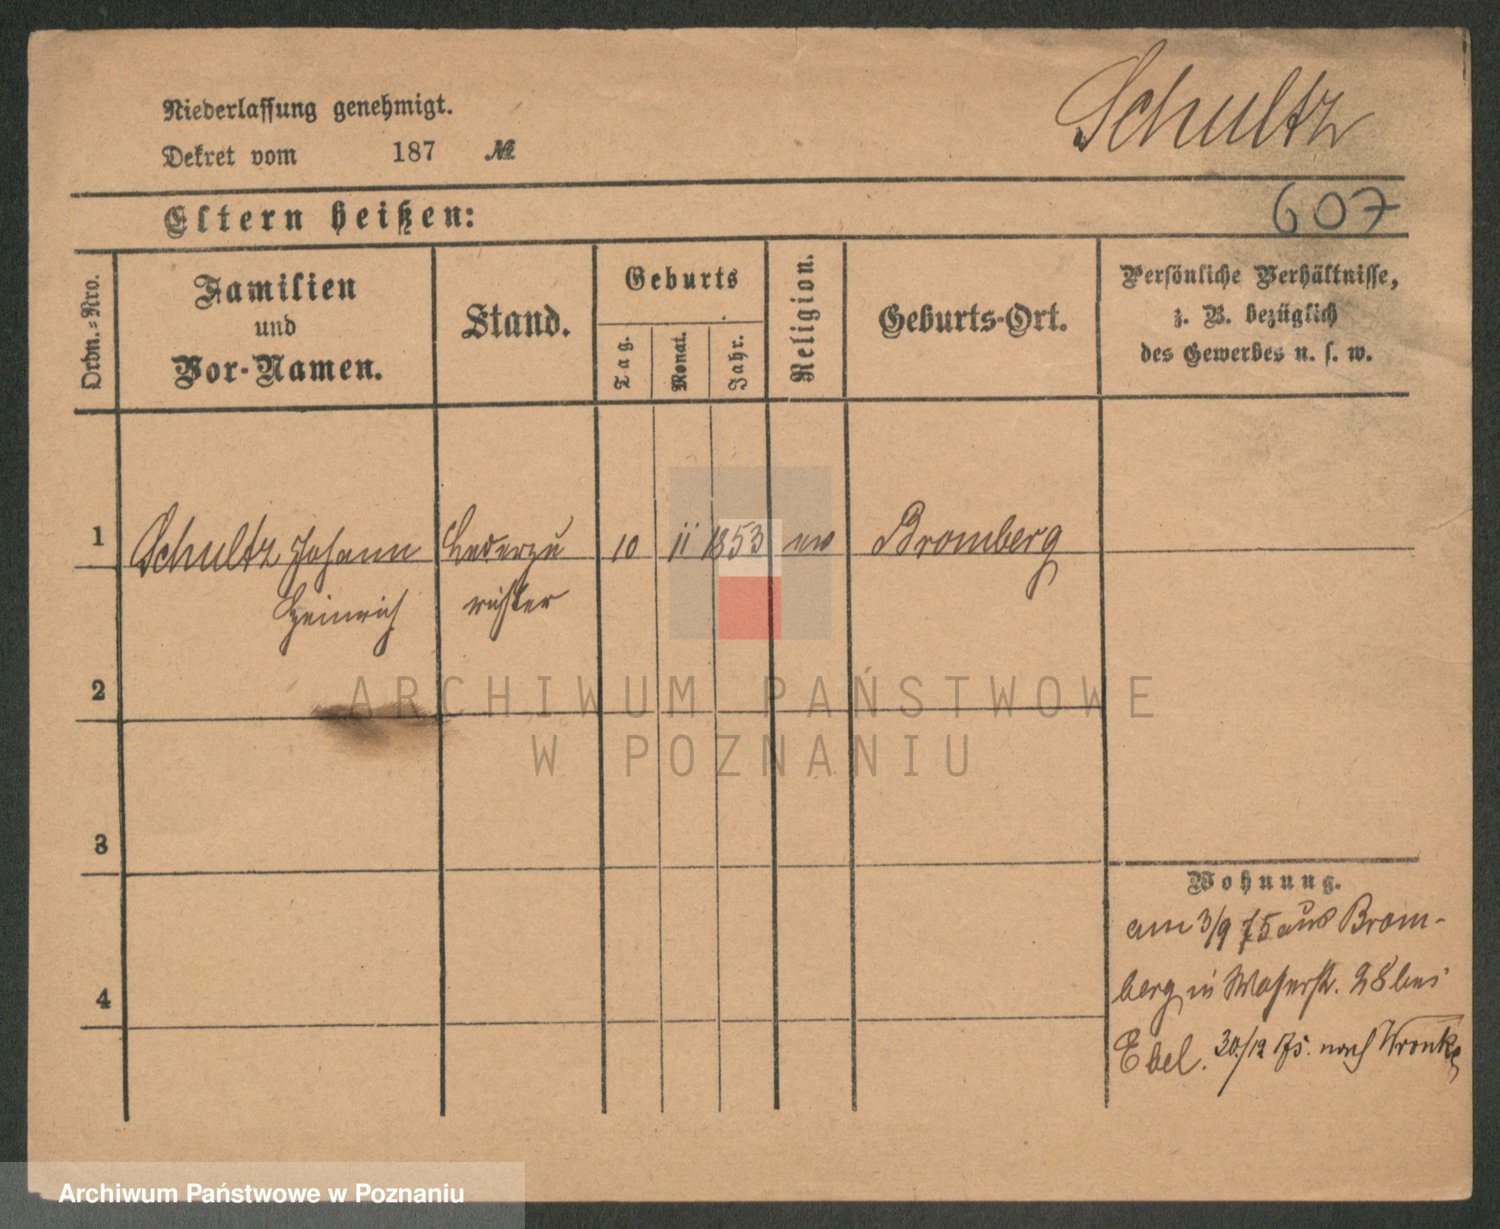 Schultz
Niederlassung genehmigt.
Dekret vom 187 №
607
Eltern heißen:
Ordn.-Nro.
Familien
und
Vor-Namen.
Stand.
Geburts
Tag.
Monat.
Jahr.
Religion.
Geburts-Ort.
Persönliche Verhältnisse,
z. B. bezüglich
des Gewerbes u. s. w.
1 Schultz Johann Lederzu 10 11 1853 ev Bromberg
Heinrich richter
2
ARCHIWUM PAŃSTWOWE
W POZNANIU
3
Wohnung.
am 3/9 75 aus Brom-
berg in Wasserstr. 28 bei
4
Ebel. 30/12 75. nach Wronke
Archiwum Państwowe w Poznaniu